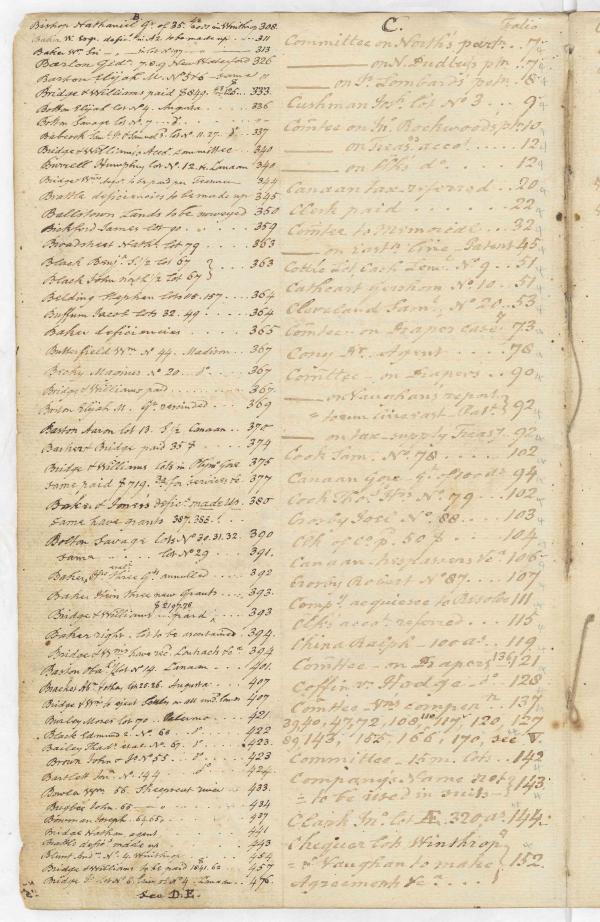 B
Bishop Nathaniel Gt. of 35. acrs in Winthrop 308.
Baker W. Esqr. defic. in A2. to be made up 311
Baker Wm. Snr 313
Barton Gid. 7.8.9 New Waterford 326
Barton Elijah M. No 376 same "
Bridge & Williams paid $849. 333
Bolton Elijah lot No 4. Augusta 336
Bolton Savage lot No 7. do.
Babcock lots No 11. 27. do. 337
Bridge & Williams's Acct. committee 340
Burrell Humphry lot No. 12. Canaan 340
Bridge Wm. to be paid 344
Brattle deficiencies to be made up 345
Ballstown Lands to be surveyed 350
Bickford James lot 359
Broadstreet Nathl. lot 79 363
Black Benj. S. 1/2 lot 67 } 363
Black John north 1/2 lot 67 }
Belding Stephen lots 18. 187 364
Buffum Jacob lots 32. 49 364
Baker deficiencies 365
Butterfield Wm. No 44. Madison 367
Bricky Magnes No 20. do. 367
Bridge & Williams paid 367.
Barton Elijah M. Gt. rescinded 369
Barton Aaron lot 13. S 1/2 Canaan 370
Barker & Bridge paid 35 $ 374
Bridge & Williams lots in Plym. Gore 375
same paid $ 719. for services &c 377
Baker & Jones's defic. made up 380
same have grants 387. 388.
Bolton Savage lots No 30. 31. 32. 390
same lot No 29 391.
Baker, Three Gts. annulled 392
Baker Heirs three new Grants 393.
$2197.78
Bridge & Williams paid 393
Baker right, lot to be ascertained 394.
Bridge & Wms have rec. &c 394
Barton lot No 14. Canaan 401.
Lots 25. 26. Augusta 407
Bridge & Wms to eject Settlers on all lands 407
Burley Moses lot 70. Palermo 421
Black Edmund No 60 do 422
Bailey Thad. No. 67. do 423.
Brown John No 55. do 423
Bartlett No. 144 do 424.
Bowen 56. Sheepscut river 433.
Bugbee John. 66 434
Bowman Joseph. 64. 65 437
Bridge Nathan agent 441
Brattle defic. made up 443
Blunt No. 4. Winthrop 454
Bridge & Williams to be paid 1841.62 457
Bridge lot No 6. No 4. Canaan 476.
See D. E.
C. Folio
Committee on North's petn. 7
—— on N. Dudley's ptn. 7
—— on Js. Lombard's petn. 8
Cushman Jos. lot No 3 9
Comtee on Jn. Rockwood's ptn 10
—— on treas. accot. 12
—— on Clk's do. 12
Canaan tax referred 20
Clerk paid 22
Comtee to Memorial 32
—— on East line Patent 45
Cottle Lot Cash Lem. No 9 51
Cathcart Gershom No 10 51
Cleaveland Saml. No 20 53
Comtee on Draper case 73
Cony Dr. Agent 78
Comttee on Drapers 90
—— on Vaughan's report }
" to run line east } 92
—— on tax—supply Treasy. 92
Cook Sam. No. 78 102
Canaan Gore Gt. of 100 as. 94
Cook Thos. Hrs No. 79 102
Crosby Joel No. 88 103
Clk of Co. p. 50 $ 104
Canaan trespassers &c 106
Crosby Robert No 87 107
Compy. acquiesce to Resolve 111
Clks accot. referred 115
China Ralph 100 as. 119
Comttee on Drapers 136, 121
Coffin v. Hodge 128
Comtee Wms compensn. 137
39, 40, 47, 72, 108, 110, 117, 120, 127
89, 143, 155, 166, 170, see V.
Committee 15 m. lots 142
Company's Name not }
to be used in suits } 143.
Clark Jno. lot Æ. 320 as. 144.
Chequer lot Winthrop }
Vaughan to make } 152.
Agreement &c }